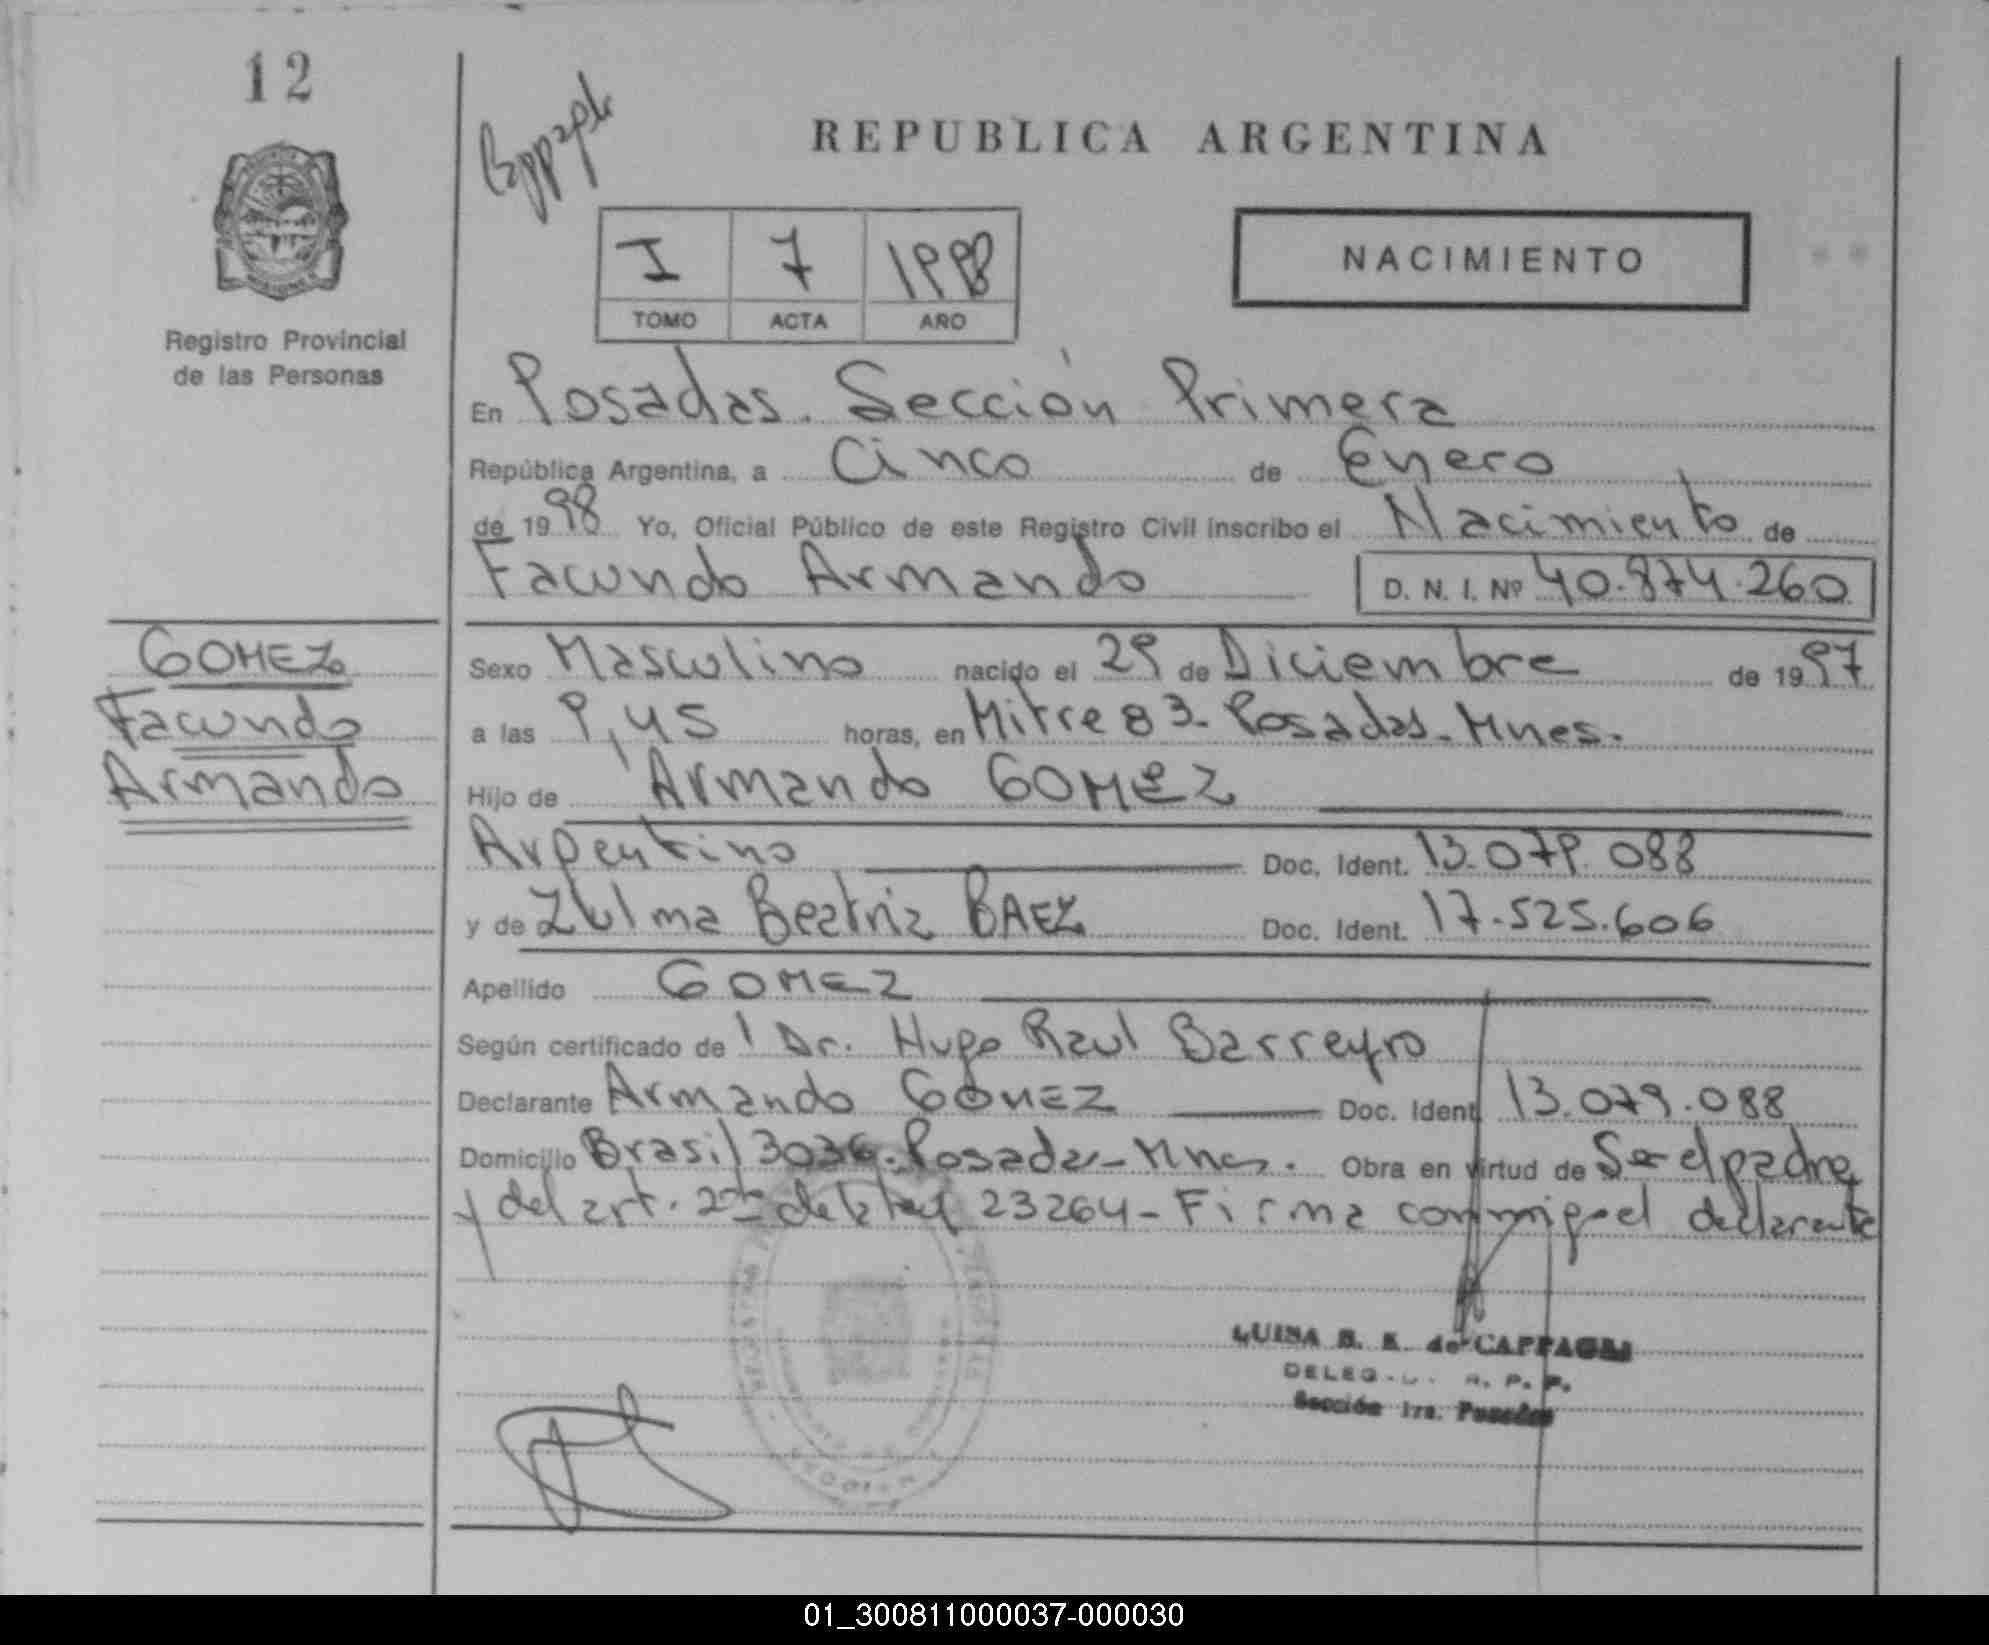 12
REPUBLICA ARGENTINA
I 7 1998
TOMO ACTA AÑO
NACIMIENTO
Registro Provincial
de las Personas
En Posadas. Sección Primera
República Argentina, a Cinco de Enero
de 1998 Yo, Oficial Público de este Registro Civil inscribo el Nacimiento de
Facundo Armando D. N. I. Nº 40.874.260
GOMEZ
Facundo
Armando
Sexo Masculino nacido el 29 de Diciembre de 1997
a las 9,45 horas, en Mitre 83- Posadas- Mnes.
Hijo de Armando GOMEZ
Argentino Doc. Ident. 13.079.088
y de Zulma Beatriz BAEZ Doc. Ident. 17.525.606
Apellido GOMEZ
Según certificado de Dr. Hugo Raul Barreyro
Declarante Armando GOMEZ Doc. Ident. 13.079.088
Domicilio Brasil 3036. Posadas- Mnes. Obra en virtud de Ser el padre
y del art. 2 de la ley 23264- Firma conmigo el declarante
LUISA B. K. de
DELEG. R. P. P.
Sección 1ra. Posadas
01_300811000037-000030